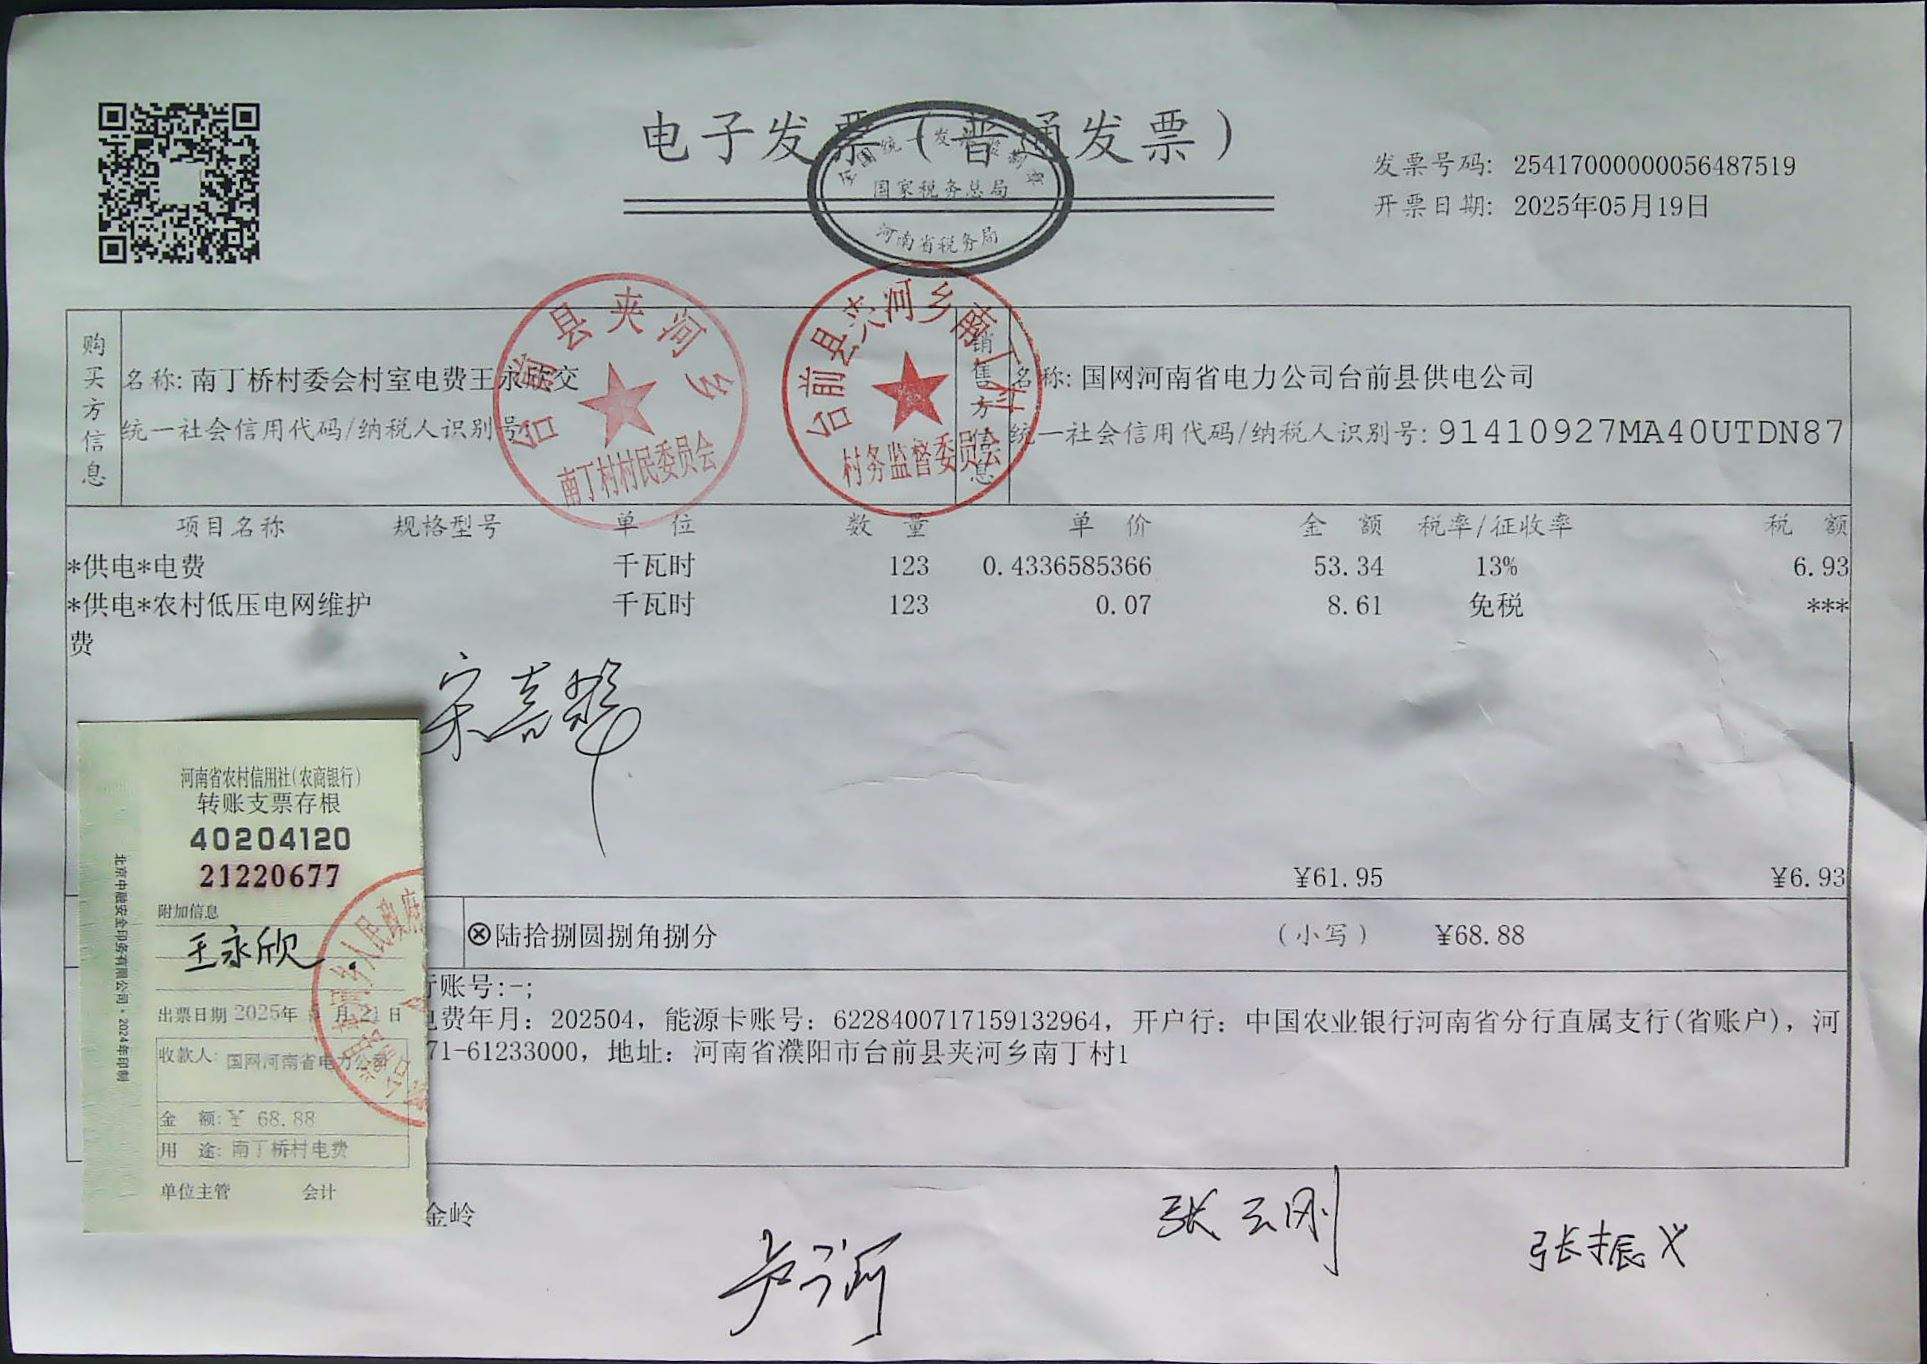 电子发票（普通发票）
全国统一发票监制章
国家税务总局
河南省税务局
发票号码: 25417000000056487519
开票日期: 2025年05月19日
购买方信息
名称: 南丁桥村委会村室电费王永欣交
统一社会信用代码/纳税人识别号
台前县夹河乡
南丁村村民委员会
台前县夹河乡南丁村
村务监督委员会
销售方信息
名称: 国网河南省电力公司台前县供电公司
统一社会信用代码/纳税人识别号: 91410927MA40UTDN87
项目名称 规格型号 单 位 数 量 单 价 金 额 税率/征收率 税 额
*供电*电费 千瓦时 123 0.4336585366 53.34 13% 6.93
*供电*农村低压电网维护 千瓦时 123 0.07 8.61 免税 ***
费
宋喜
¥61.95 ¥6.93
ⓧ陆拾捌圆捌角捌分 （小写） ¥68.88
行账号:-;
电费年月: 202504, 能源卡账号: 6228400717159132964, 开户行: 中国农业银行河南省分行直属支行(省账户), 河
71-61233000, 地址: 河南省濮阳市台前县夹河乡南丁村1
河南省农村信用社(农商银行)
转账支票存根
40204120
21220677
附加信息
王永欣
出票日期 2025年 月 21日
收款人: 国网河南省电力公司
金 额: ¥ 68.88
用 途: 南丁桥村电费
单位主管 会计
北京中融安全印务有限公司·2024年印制
人民政府
金岭
张云刚
张振义